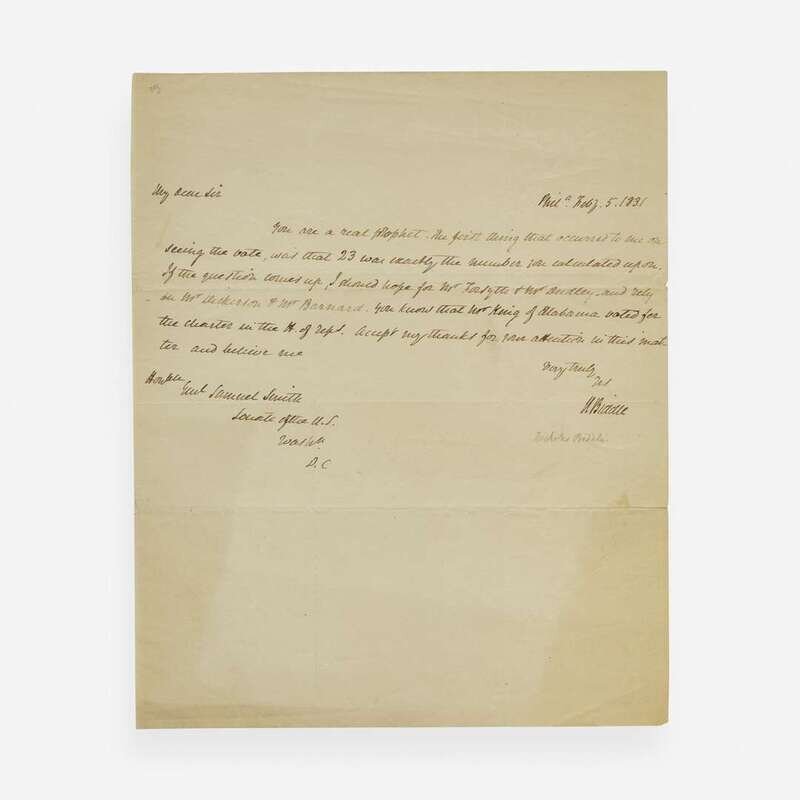 My Dear Sir
Phila. Feby. 5. 1831
You are a real Prophet. The first thing that occurred to me on
seeing the vote, was that 23 was exactly the number you calculated upon.
If the question comes up, I should hope for Mr Forsyth & Mr Dudley, and rely
on Mr Dickerson & Mr Barnard. You know that Mr King of Alabama voted for
the charter in the H. of Reps. Accept my thanks for your attention in this mat
ter and believe me
Very truly
Yrs
N Biddle
Nicholas Biddle
Honble
Genl Samuel Smith
Senate of the U.S.
Washn
D. C